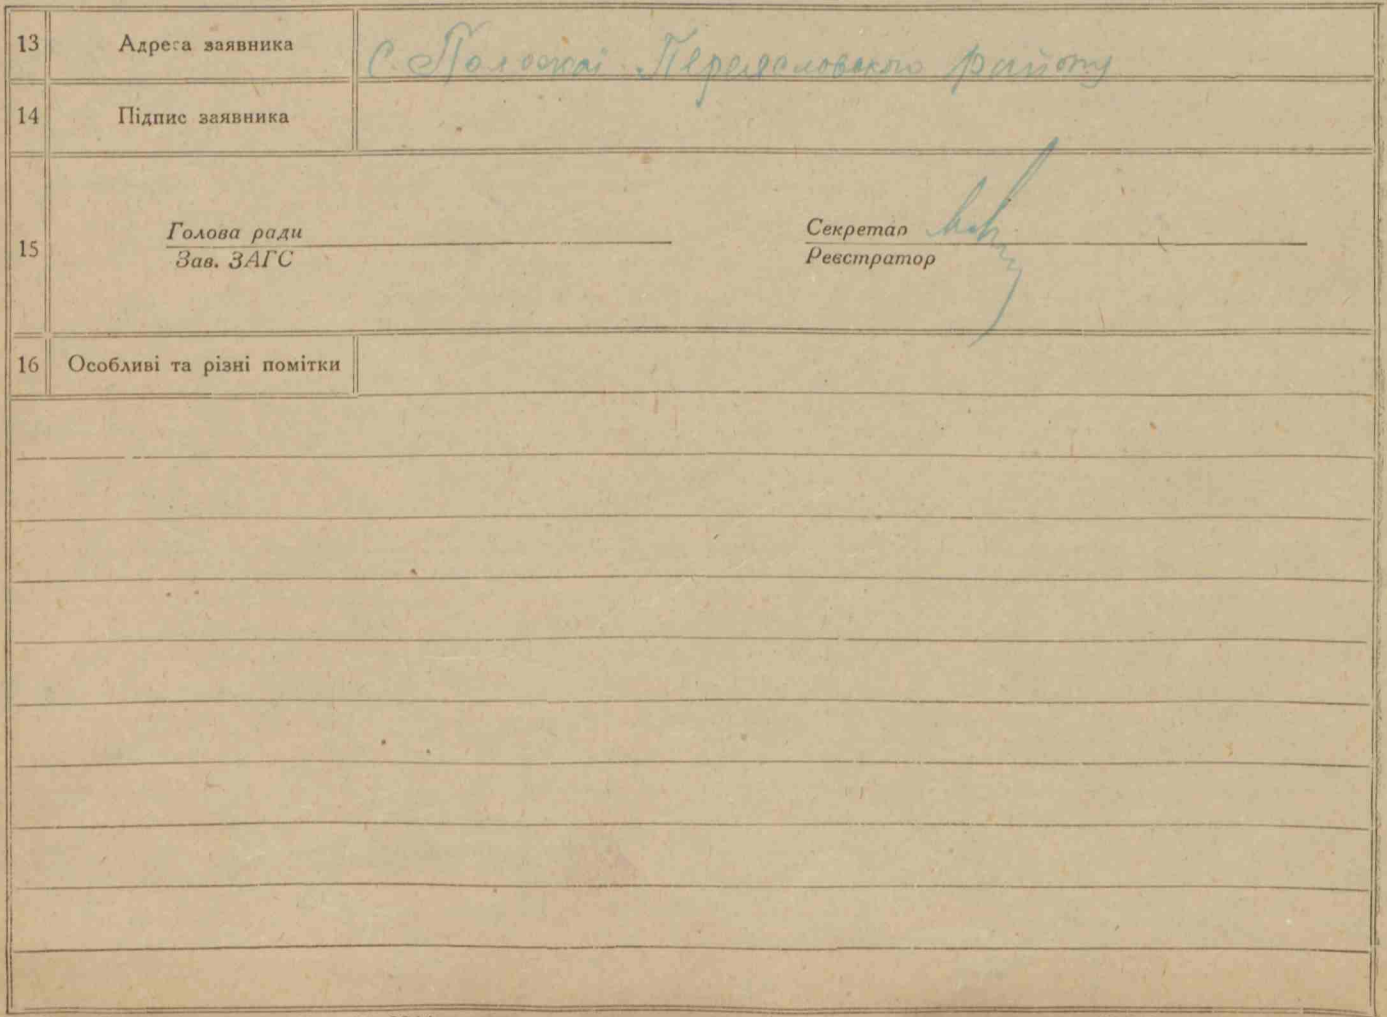 13 Адреса заявника С. Полоскаі Переясловского району
14 Підпис заявника
15 Голова ради Секретар
Зав. ЗАГС Реєстратор
16 Особливі та різні помітки